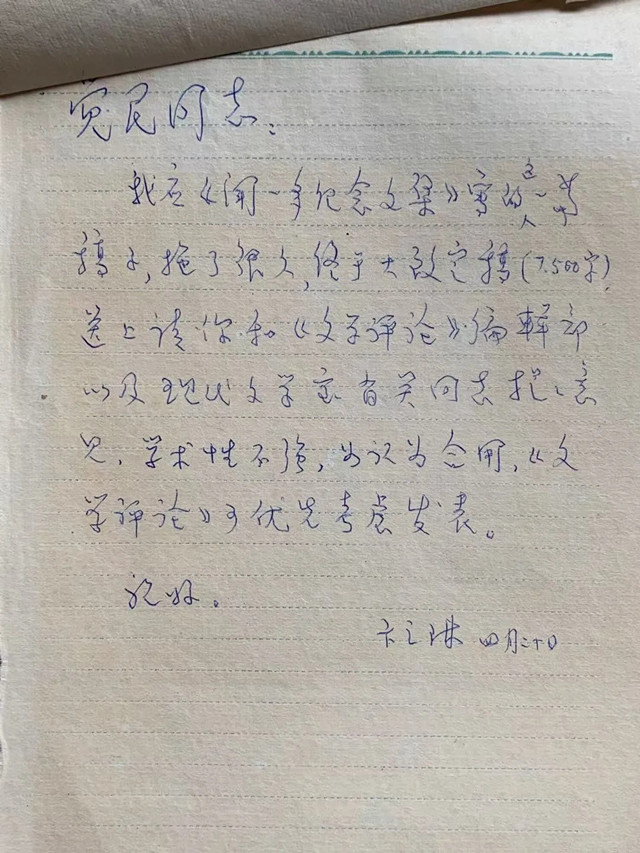 觉民同志：
我应《闻一多纪念文集》写的一篇
稿子，拖了很久，终于大致定稿(7.500字)，
送上请你和《文学评论》编辑部
以及现代文学室有关同志提提意
见，学术性不强，如认为合用，《文
学评论》可优先考虑发表。
祝好。
卞之琳 四月二十日